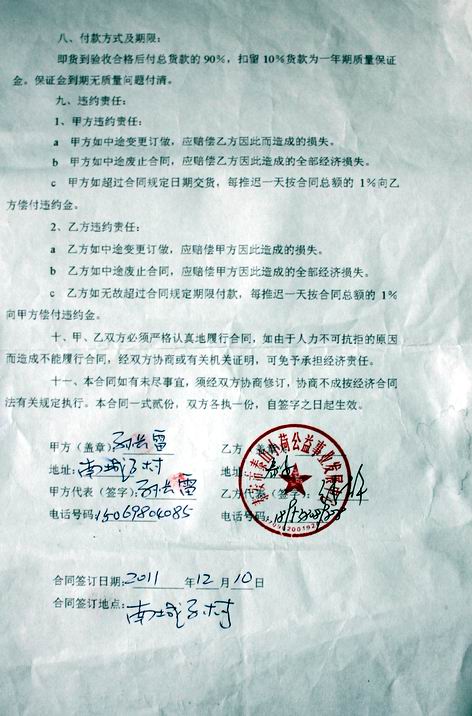 八、付款方式及期限：
即货到验收合格后付总货款的 90%，扣留 10%货款为一年期质量保证
金。保证金到期无质量问题付清。
九、违约责任：
1、甲方违约责任：
a 甲方如中途变更订做，应赔偿乙方因此而造成的损失。
b 甲方如中途废止合同，应赔偿乙方因此造成的全部经济损失。
c 甲方如超过合同规定日期交货，每推迟一天按合同总额的 1%向乙
方偿付违约金。
2、乙方违约责任：
a 乙方如中途变更订做，应赔偿甲方因此造成的损失。
b 乙方如中途废止合同，应赔偿甲方因此造成的全部经济损失。
c 乙方如无故超过合同规定期限付款，每推迟一天按合同总额的 1%
向甲方偿付违约金。
十、甲、乙双方必须严格认真地履行合同，如由于人力不可抗拒的原因
而造成不能履行合同，经双方协商或有关机关证明，可免予承担经济责任。
十一、本合同如有未尽事宜，须经双方协商修订，协商不成按经济合同
法有关规定执行。本合同一式贰份，双方各执一份，自签字之日起生效。
甲方（盖章） 乙方（盖章）
地址:南城子村 地址
甲方代表（签字）: 乙方代表（签字）:
电话号码:15069804085 电话号码:
小荷公益事业发展
合同签订日期:2011 年 12 月 10 日
合同签订地点:南城子村